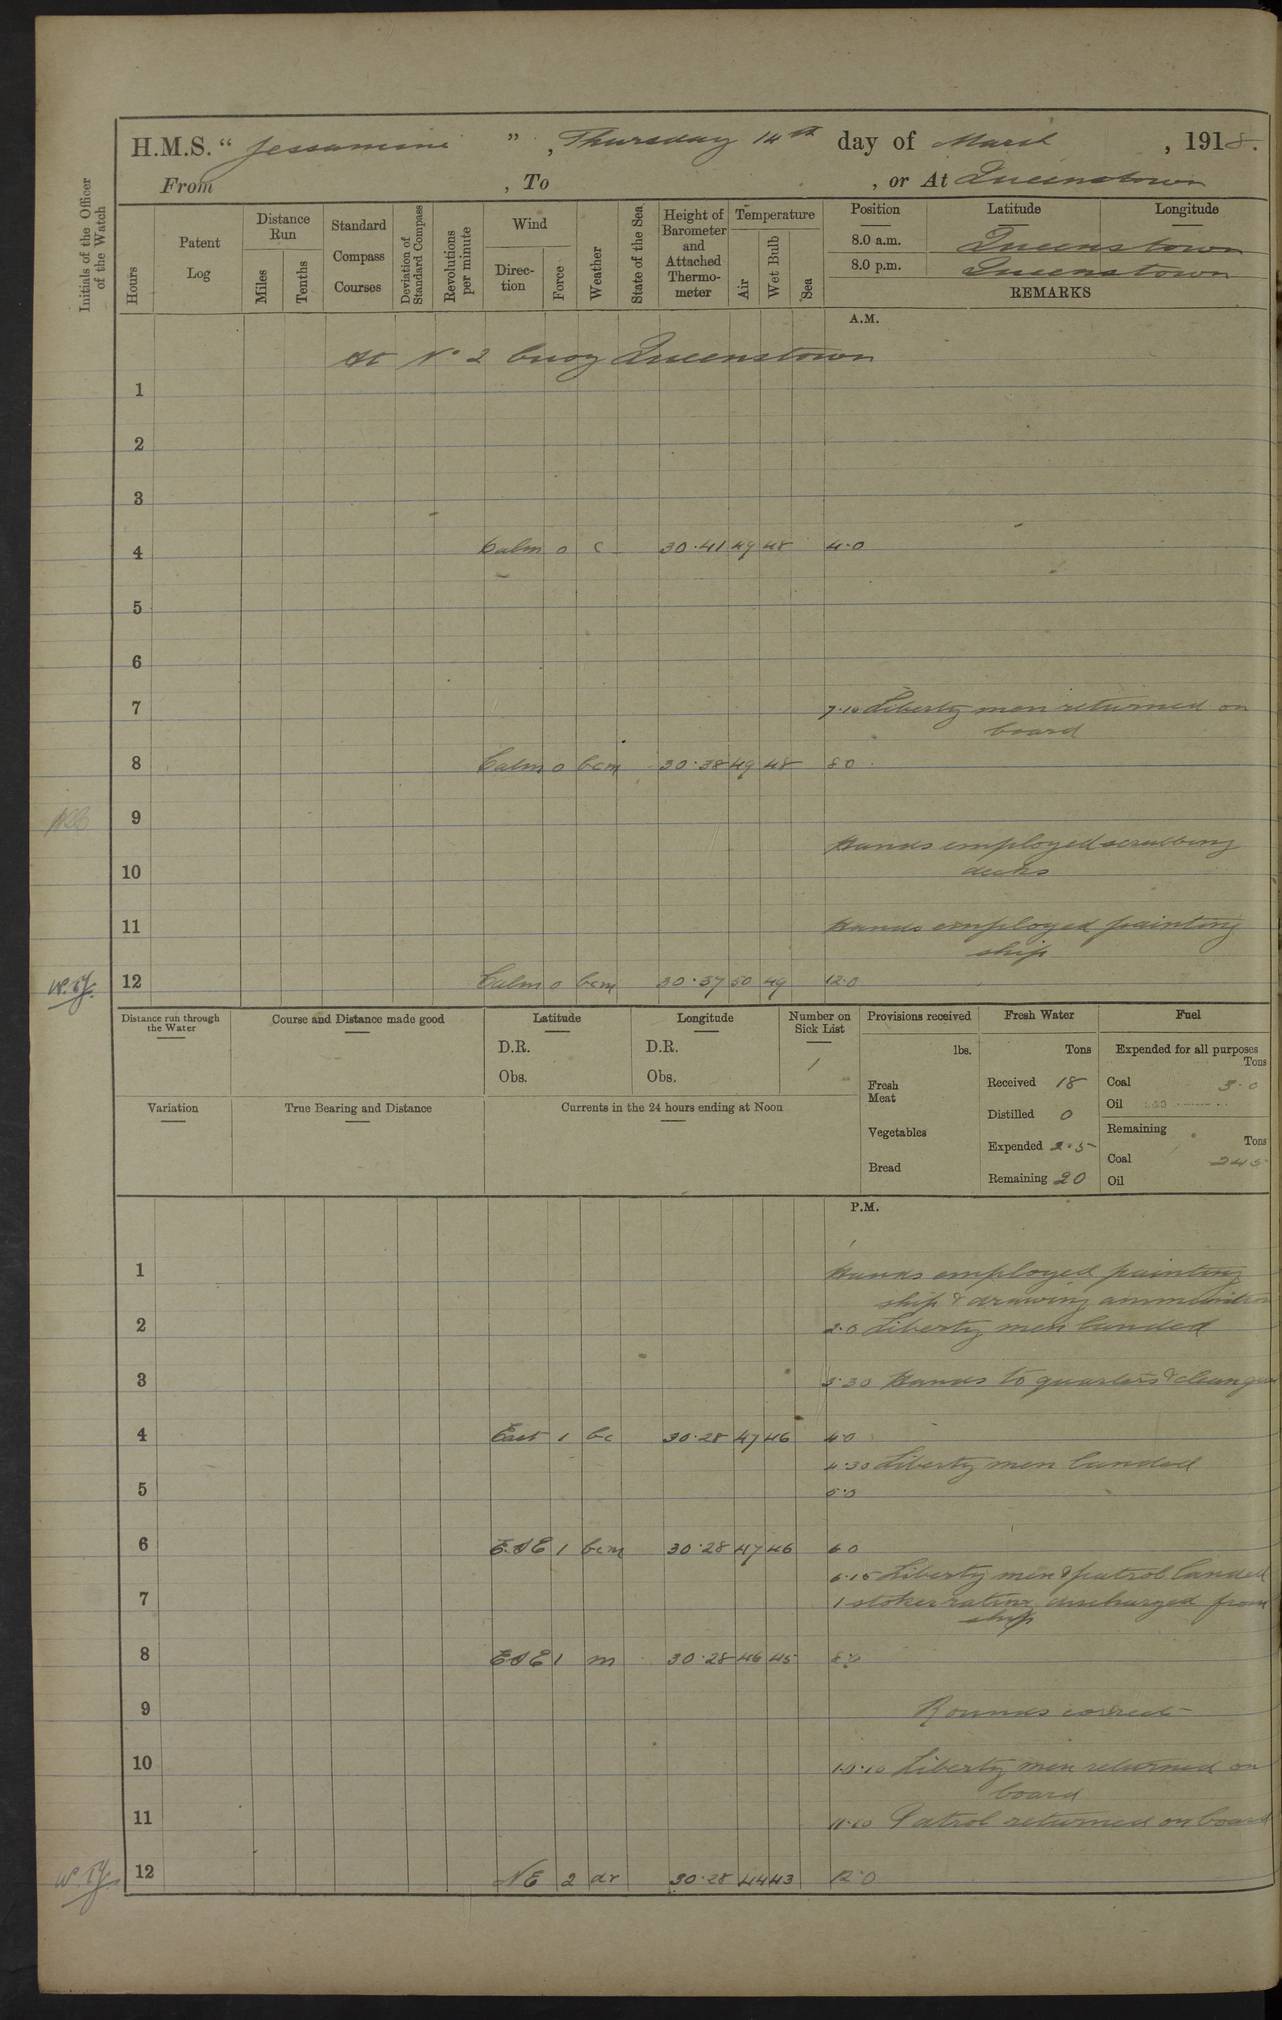 H.M.S. "Jessamine", Thursday 14th day of March, 1918.
From , To , or At Queenstown
Initials of the Officer of the Watch
Hours
Patent Log
Distance Run
Miles
Tenths
Standard Compass Courses
Deviation of Standard Compass
Revolutions per minute
Wind
Direction
Force
Weather
State of the Sea
Height of Barometer and Attached Thermometer
Temperature
Air
Wet Bulb
Sea
Position Latitude Longitude
8.0 a.m. Queenstown
8.0 p.m. Queenstown
REMARKS
A.M.
At No 2 buoy Queenstown
1
2
3
4 Calm 0 c 30.41 49 48 4.0
5
6
7 7.10 Liberty men returned on
board
8 Calm 0 bcm 30.38 49 48 8.0
9
Hands employed scrubbing
10 decks
11 Hands employed painting
ship
W.Ty. 12 Calm 0 bcm 30.37 50 49 12.0
Distance run through the Water
Course and Distance made good
Latitude
D.R.
Obs.
Longitude
D.R.
Obs.
Number on Sick List
1
Provisions received
lbs.
Fresh Meat
Vegetables
Bread
Fresh Water
Tons
Received 18
Distilled 0
Expended 2.5
Remaining 20
Fuel
Expended for all purposes
Tons
Coal 3.0
Oil
Remaining
Tons
Coal 245
Oil
Variation
True Bearing and Distance
Currents in the 24 hours ending at Noon
P.M.
1 Hands employed painting
ship & drawing ammunition
2 2.0 Liberty men landed
3 3.30 Hands to quarters & clean guns
4 East 1 bc 30.28 47 46 4.0
4.30 Liberty men landed
5 5.0
6 E.S.E 1 bcm 30.28 47 46 6.0
6.15 Liberty men & patrol landed
7 1 stoker rating discharged from
ship
8 ESE 1 m 30.28 46 45 8.0
9 Rounds correct
10 10.10 Liberty men returned on
board
11 Patrol returned on board
W.Ty. 12 NE 2 dr 30.28 44 43 12.0